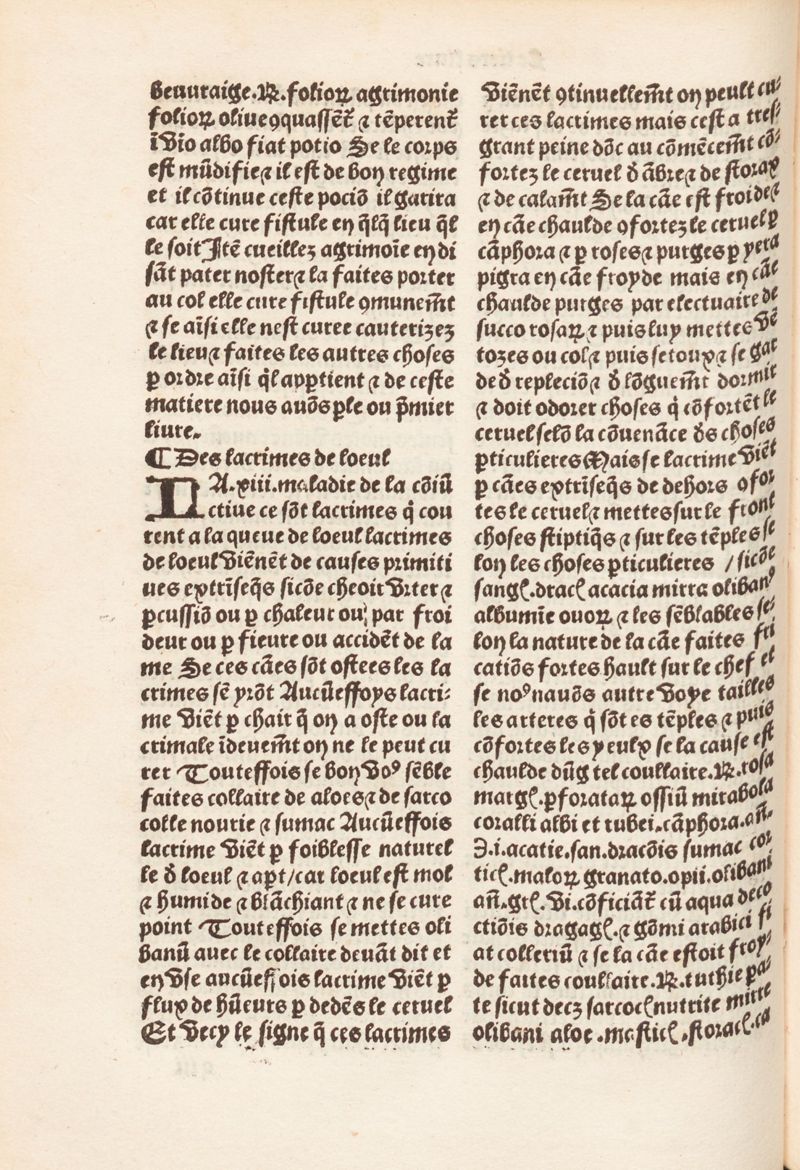 beuuraige.℞.folioꝝ agrimonie
folioꝝ oliue ꝯquassēt᷑ ⁊ tēperent᷑
ī vīo albo fiat potio Se le corps
est mūdifie ⁊ il est de bon regime
et il cōtinue ceste pociō il garira
car elle cure fistule en q̄lq̄ lieu q̄l
le soit Itē cueillez agrimoīe en di
sāt pater noster ⁊ la faites porter
au col elle cure fistule ꝯmunem̄t
⁊ se aīsi elle nest curee cauterizez
le lieu ⁊ faites les autres choses
ꝑ ordre aīsi q̄l apꝑtient ⁊ de ceste
matiere nous auōs ꝑle ou p̄mier
liure.
¶ Des lacrimes de loeul
LA.xiii.maladie de la cōiū
ctiue ce sōt lacrimes q̄ cou
rent a la queue de loeul lacrimes
de loeul viēnēt de causes primiti
ues extrīseq̄s sicōe cheoir vrter ⁊
ꝑcussiō ou ꝑ chaleur ou par froi
deur ou ꝑ fieure ou accidēt de la
me Se ces cāes sōt ostees les la
crimes sē yrōt Aucūeffoys lacri-
me viēt ꝑ chair q̄ on a oste ou la
crimale īdeuem̄t on ne le peut cu
rer Touteffois se bon voꝰ sēble
faites collaire de aloes ⁊ de sarco
colle nourie ⁊ sumac Aucūeffois
lacrime viēt ꝑ foiblesse naturel
le ď loeul ⁊ apt̄/car loeul est mol
⁊ humide ⁊ blāchiant ⁊ ne se cure
point Touteffois se mettes oli
banū auec le collaire deuāt dit et
en vse aucūeffois lacrime viēt ꝑ
flux de hūeurs ꝑ dedēs le ceruel
Et vecy le signe q̄ ces lacrimes
viēnēt ꝯtinuellem̄t on peult cu-
rer ces lacrimes mais cest a tres-
grant peine dōc au cōmēcem̄t cō-
fortez le ceruel ď ābre ⁊ de storax
⁊ de calam̄t Se la cāe est froide ⁊
en cāe chaulde ꝯfortez le ceruel ꝑ
cāphora ⁊ ꝑ roses ⁊ purges ꝑ yera
pigra en cāe froyde mais en cāe
chaulde purges par electuaire de
succo rosaꝝ ⁊ puis luy mettes vē
tozes ou col ⁊ puis se toux ⁊ se gar
de ď repleciō ⁊ ď lōguem̄t dormir
⁊ doit odorer choses q̄ cōfortēt le
ceruel selō la cōuenāce ďs choses
ꝑticulieres Mais se lacrime viēt
ꝑ cāes extrīseq̄s de dehors ꝯfor
tes le ceruel ⁊ mettes sur le front
choses stiptiq̄s ⁊ sur les tēples se
lon les choses ꝑticulieres / sicōe
sangl̄. dracl̄ acacia mirra olibanꝰ
albumīe ouoꝝ ⁊ les sēblables se-
lon la nature de la cāe faites fri
catiōs fortes hault sur le chef et
se noꝰ nauōs autre voye tailles
les arteres q̄ sōt es tēples ⁊ puis
cōfortes les yeulx se la cause est
chaulde dūg tel coullaire.℞.rosa
margl̄.ꝑforataꝝ ossiū mirabola
coralli albi et rubei.cāphora.añ.
ʒ.i.acatie.san.dracōis sumac cor
ticl̄.maloꝝ granato.opii.olibani
añ.grl̄.vi.cōficiāt᷑ cū aqua deco
ctiōis dragagl̄.⁊ gōmi arabici fi
at colleriū ⁊ se la cāe estoit froy-
de faites coullaire.℞.tuthie pa-
te sicut decz sarcocl̄ nutrite mirre
olibani aloe.masticl̄.storacl̄.ca